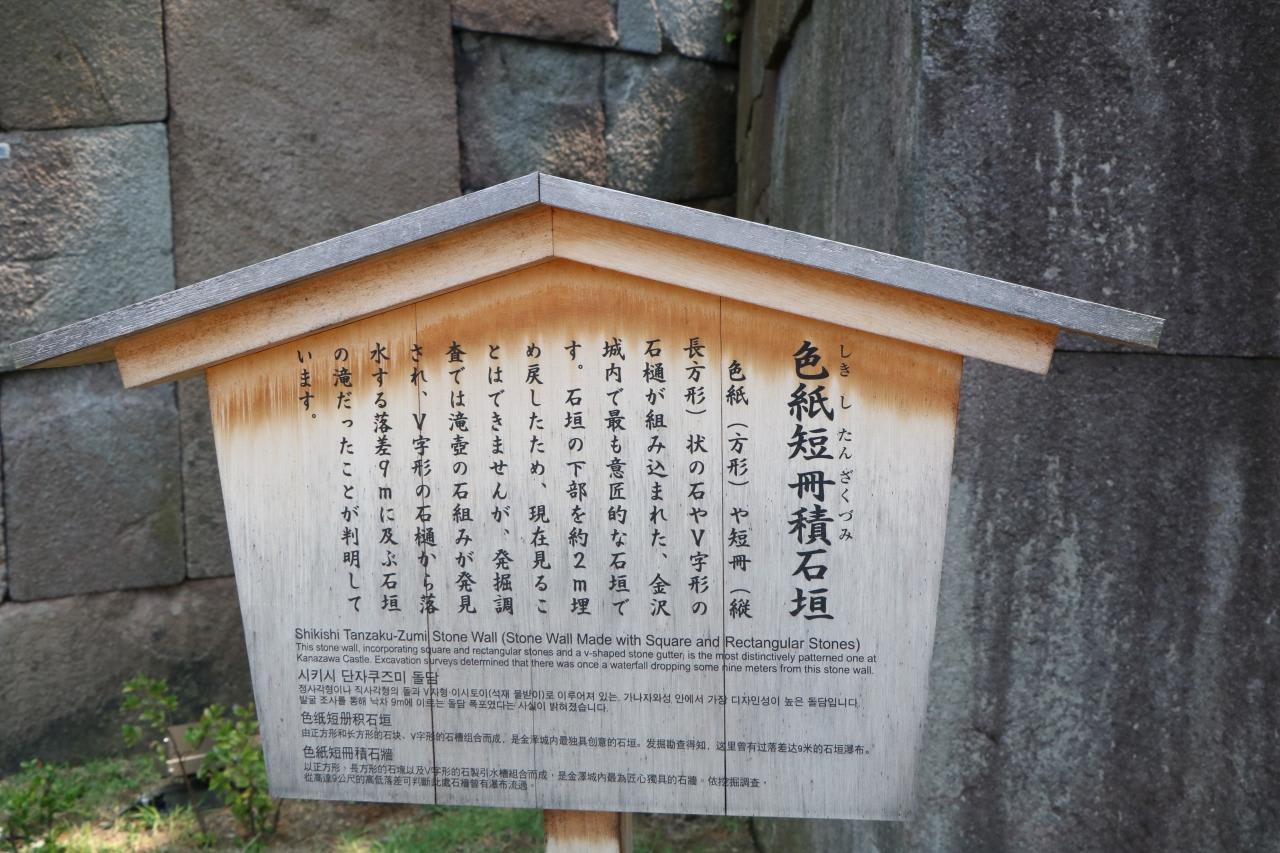 色紙短冊積石垣
しきし たんざくづみ
色紙(方形)や短冊(縦
長方形)状の石やV字形の
石樋が組み込まれた、金沢
城内で最も意匠的な石垣で
す。石垣の下部を約2m埋
め戻したため、現在見るこ
とはできませんが、発掘調
査では滝壺の石組みが発見
され、V字形の石樋から落
水する落差9mに及ぶ石垣
の滝だったことが判明して
います。
Shikishi Tanzaku-Zumi Stone Wall (Stone Wall Made with Square and Rectangular Stones)
This stone wall, incorporating square and rectangular stones and a v-shaped stone gutter, is the most distinctively patterned one at
Kanazawa Castle. Excavation surveys determined that there was once a waterfall dropping some nine meters from this stone wall.
시키시 단자쿠즈미 돌담
정사각형이나 직사각형의 돌과 V자형 이시토이(석재 물받이)로 이루어져 있는, 가나자와성 안에서 가장 디자인성이 높은 돌담입니다.
발굴 조사를 통해 낙차 9m에 이르는 돌담 폭포였다는 사실이 밝혀졌습니다.
色纸短册积石垣
由正方形和长方形的石块、V字形的石槽组合而成，是金泽城内最独具创意的石垣。发掘勘查得知，这里曾有过落差达9米的石垣瀑布。
色紙短冊積石牆
以正方形、長方形的石塊以及V字形的石製引水槽組合而成，是金澤城內最為匠心獨具的石牆。依挖掘調查，
從高達9公尺的高低落差可判斷此處石牆曾有瀑布流過。